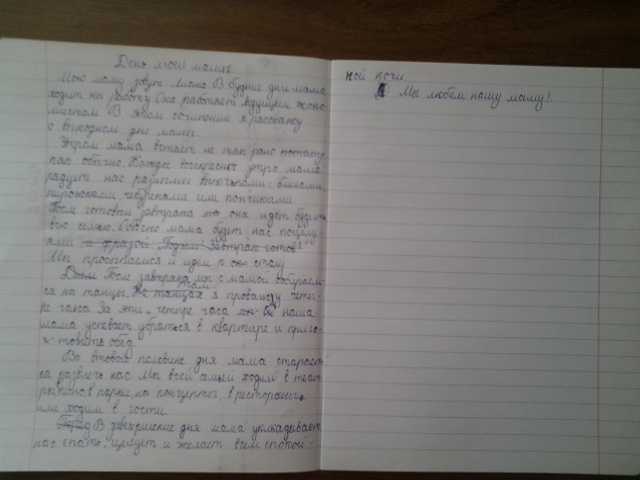 День моей мамы
Мою маму зовут В будние дни мама
ходит на работу. Она работает ведущим эконо-
мистом. В этом сочинении я расскажу
о выходном дне мамы.
Утром мама встаёт не так рано
обычно. Каждое воскресное утро мама
радует нас разными блинами,
пирожками, чебуреками или пончиками.
После готовки завтрака она идёт будить
всю семью. мама будит нас поцелу-
ями и фразой "Подъём! Завтрак готов"
Мы просыпаемся и идём к столу
Днём После завтрака мы с мамой собираем-
ся на танцы. На танцах там я провожу четы-
ре часа. За эти четыре часа наша
мама успевает убраться в квартире и приго-
товить обед.
Во второй половине дня мама старает-
ся развлечь нас. Мы всей семьёй ходим в театр
в парки, на концерты, в рестораны,
или ходим в гости.
В завершение дня мама укладывает
нас спать, целует и желает всем спокой-
ной ночи.
Мы любим нашу маму!